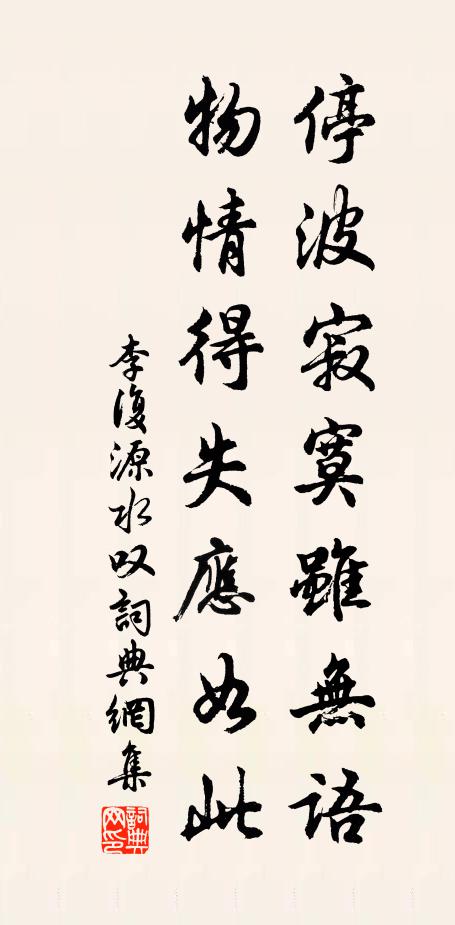 停波寂寞雖無語
物情得失應如此
李復源水叹詞典網集
詞典网印